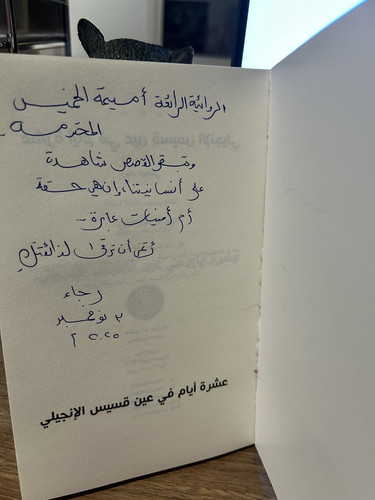 الروائية الرائعة أميمة الخميس
المحترمة
وتبقى القصص شاهدة
على أنسانيتنا، إن هي حقة
أم أمنيات عابرة..
أتمنى أن ترقى لذائقتكِ
رجاء
٣ نوفمبر
٢٠٢٥
عشرة أيام في عين قسيس الإنجيلي